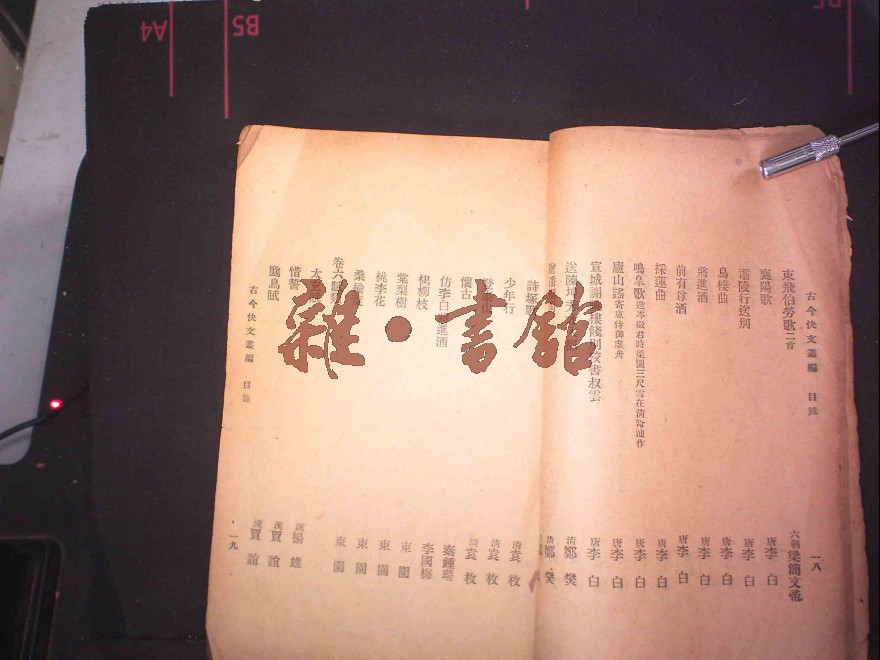 古今快文叢編 目錄
一八
東飛伯勞歌二首 六朝梁簡文帝
襄陽歌 唐李白
灞陵行送別 唐李白
烏棲曲 唐李白
將進酒 唐李白
前有尊酒 唐李白
採蓮曲 唐李白
鳴皋歌送岑徵君時梁園三尺雪在清泠池作 唐李白
廬山謠寄盧侍御虛舟 唐李白
宣城謝樓餞別校書叔雲 唐李白
送陳 清鄭燮
清鄭燮
詩塚歌
少年行 清袁枚
登泰山 清袁枚
懷古 清袁枚
仿李白將進酒 秦鍾瑞
楊柳枝 李國梅
棠梨樹 東園
桃李花 東園
桑 東園
卷六賦類 東園
太玄賦 漢揚雄
惜誓 漢賈誼
鵩鳥賦 漢賈誼
古今快文叢編 目錄
一九
雜·書館
B5
A4
B5